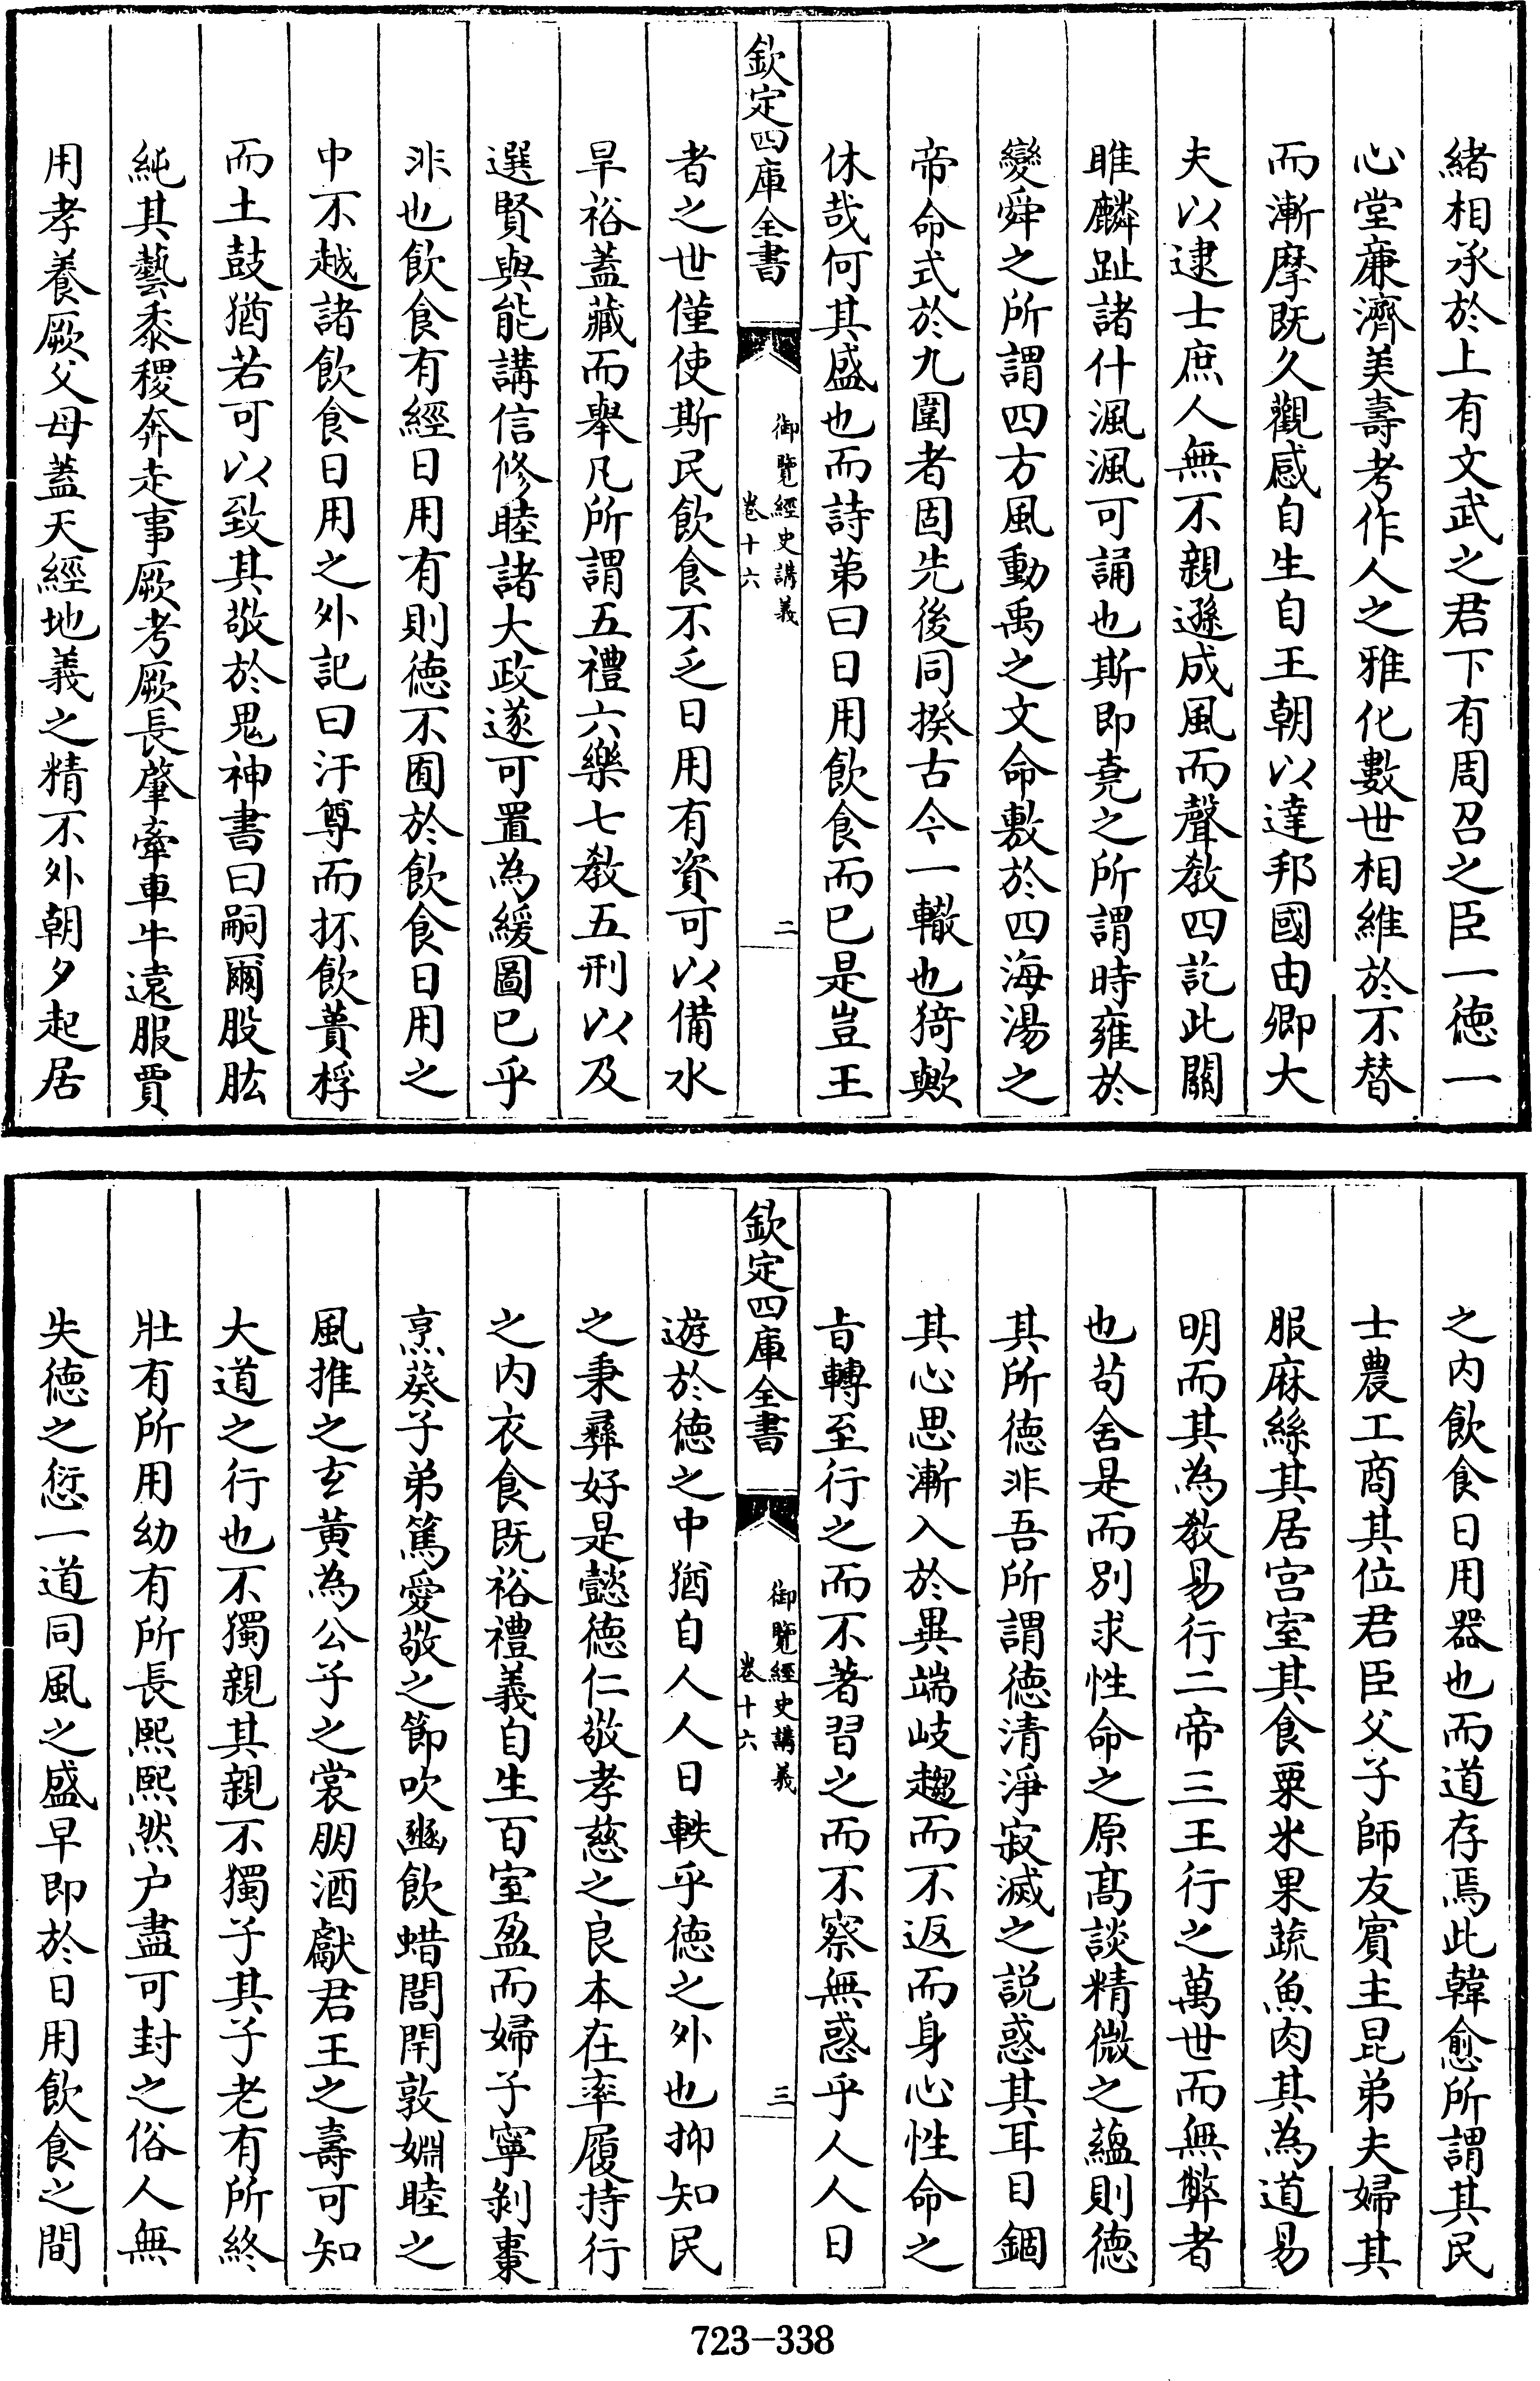 緒相承於上有文武之君下有周召之臣一徳一
心堂亷濟美壽考作人之雅化數世相維於不替
而漸摩既久觀感自生自王朝以達邦國由卿大
夫以逮士庶人無不親遜成風而聲教四訖此關
雎麟趾諸什渢渢可誦也斯即堯之所謂時雍於
變舜之所謂四方風動禹之文命敷於四海湯之
帝命式於九圍者固先後同揆古今一轍也猗歟
休哉何其盛也而詩第曰日用飲食而已是豈王
欽定四庫全書
御覽經史講義
卷十六
二
者之世僅使斯民飲食不乏日用有資可以備水
旱裕葢藏而舉凡所謂五禮六樂七教五刑以及
選賢與能講信修睦諸大政遂可置為緩圖已乎
非也飲食有經日用有則徳不囿於飲食日用之
中不越諸飲食日用之外記曰汙尊而抔飲蕢桴
而土鼓猶若可以致其敬於鬼神書曰嗣爾股肱
純其藝黍稷奔走事厥考厥長肇牽車牛遠服賈
用孝養厥父母蓋天經地義之精不外朝夕起居
之内飲食日用器也而道存焉此韓愈所謂其民
士農工商其位君臣父子師友賓主昆弟夫婦其
服麻絲其居宫室其食粟米果蔬魚肉其為道易
明而其為教易行二帝三王行之萬世而無弊者
也苟舍是而别求性命之原髙談精微之蘊則徳
其所徳非吾所謂徳清淨寂滅之説惑其耳目錮
其心思漸入於異端岐趨而不返而身心性命之
㫖轉至行之而不著習之而不察無惑乎人人日
欽定四庫全書
御覽經史講義
卷十六
三
遊於徳之中猶自人人日軼乎徳之外也抑知民
之秉彞好是懿徳仁敬孝慈之良本在率履持行
之内衣食既裕禮義自生百室盈而婦子寧剥棗
烹葵子弟篤愛敬之節吹豳飲蜡閭閈敦婣睦之
風推之𤣥黄為公子之裳朋酒獻君王之壽可知
大道之行也不獨親其親不獨子其子老有所終
壯有所用幼有所長熙熙然户盡可封之俗人無
失徳之愆一道同風之盛早即於日用飲食之間
723-338